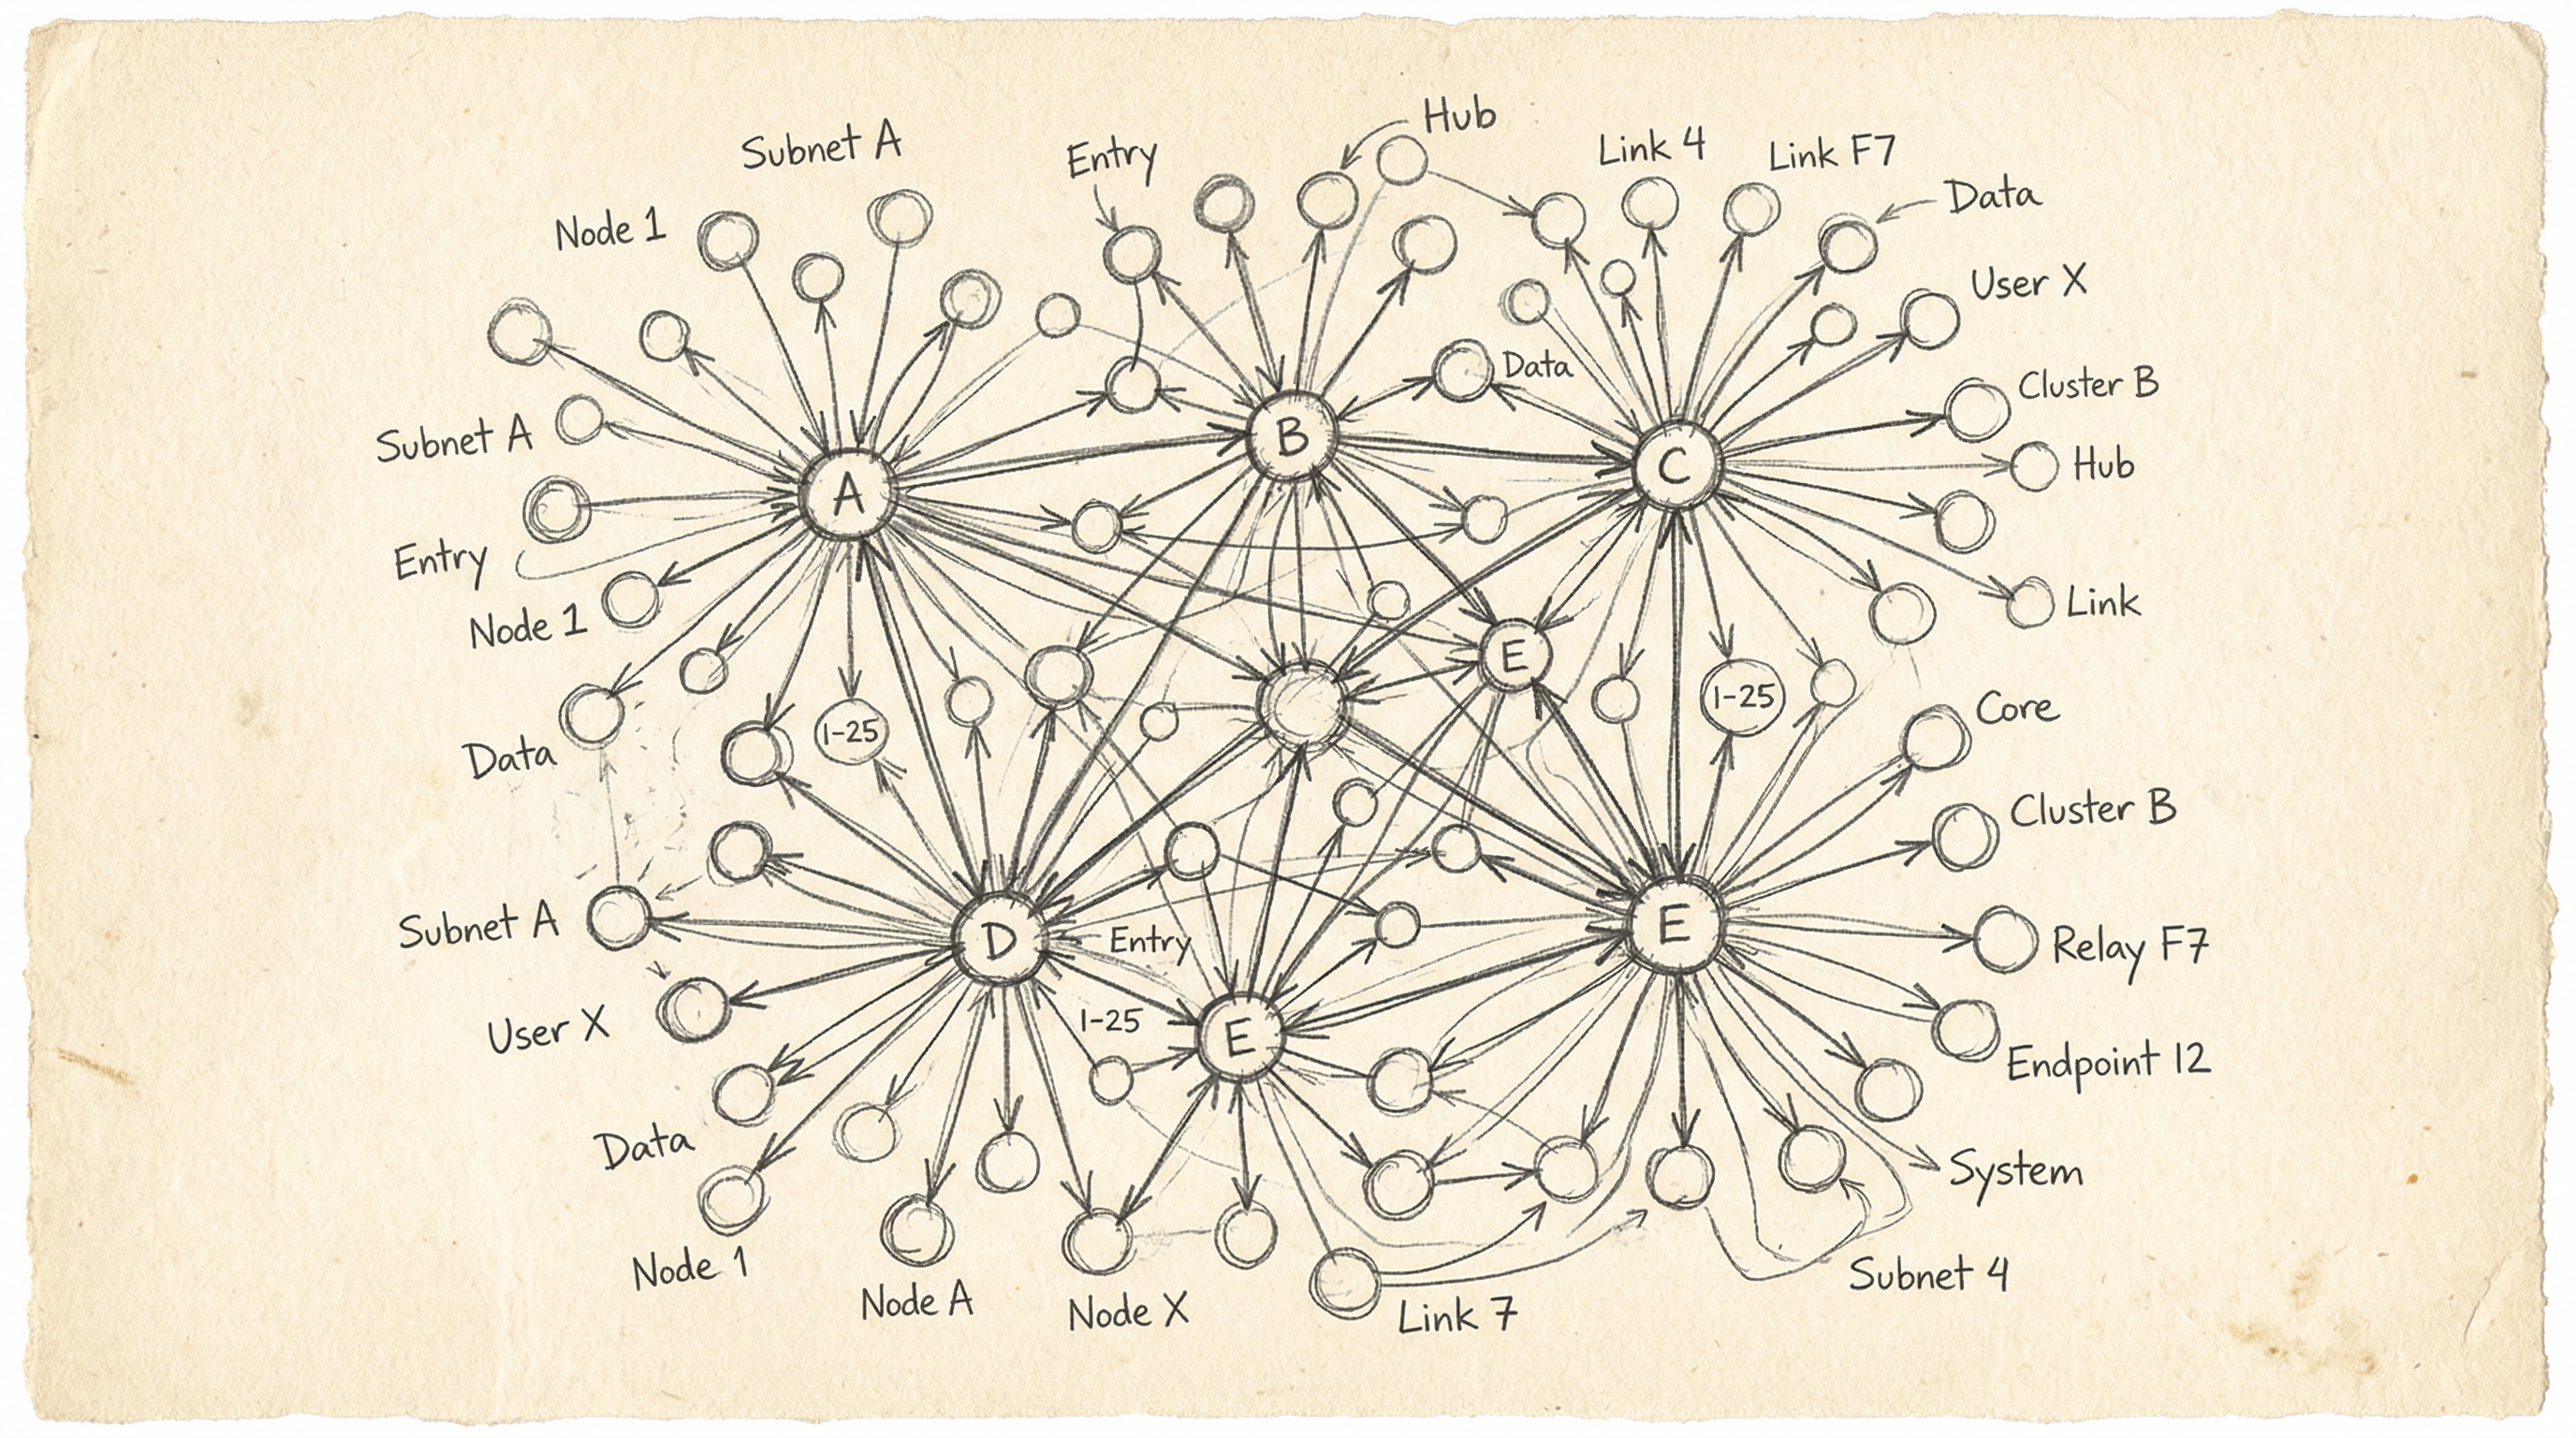 Hub
Subnet A
Entry
Link 4
Link F7
Data
Node 1
User X
Data
Cluster B
Subnet A
B
C
Hub
A
Entry
Node 1
Link
E
1-25
Core
1-25
Data
Cluster B
Subnet A
D
Entry
E
Relay F7
User X
1-25
E
Endpoint 12
Data
System
Node 1
Subnet 4
Node A
Node X
Link 7